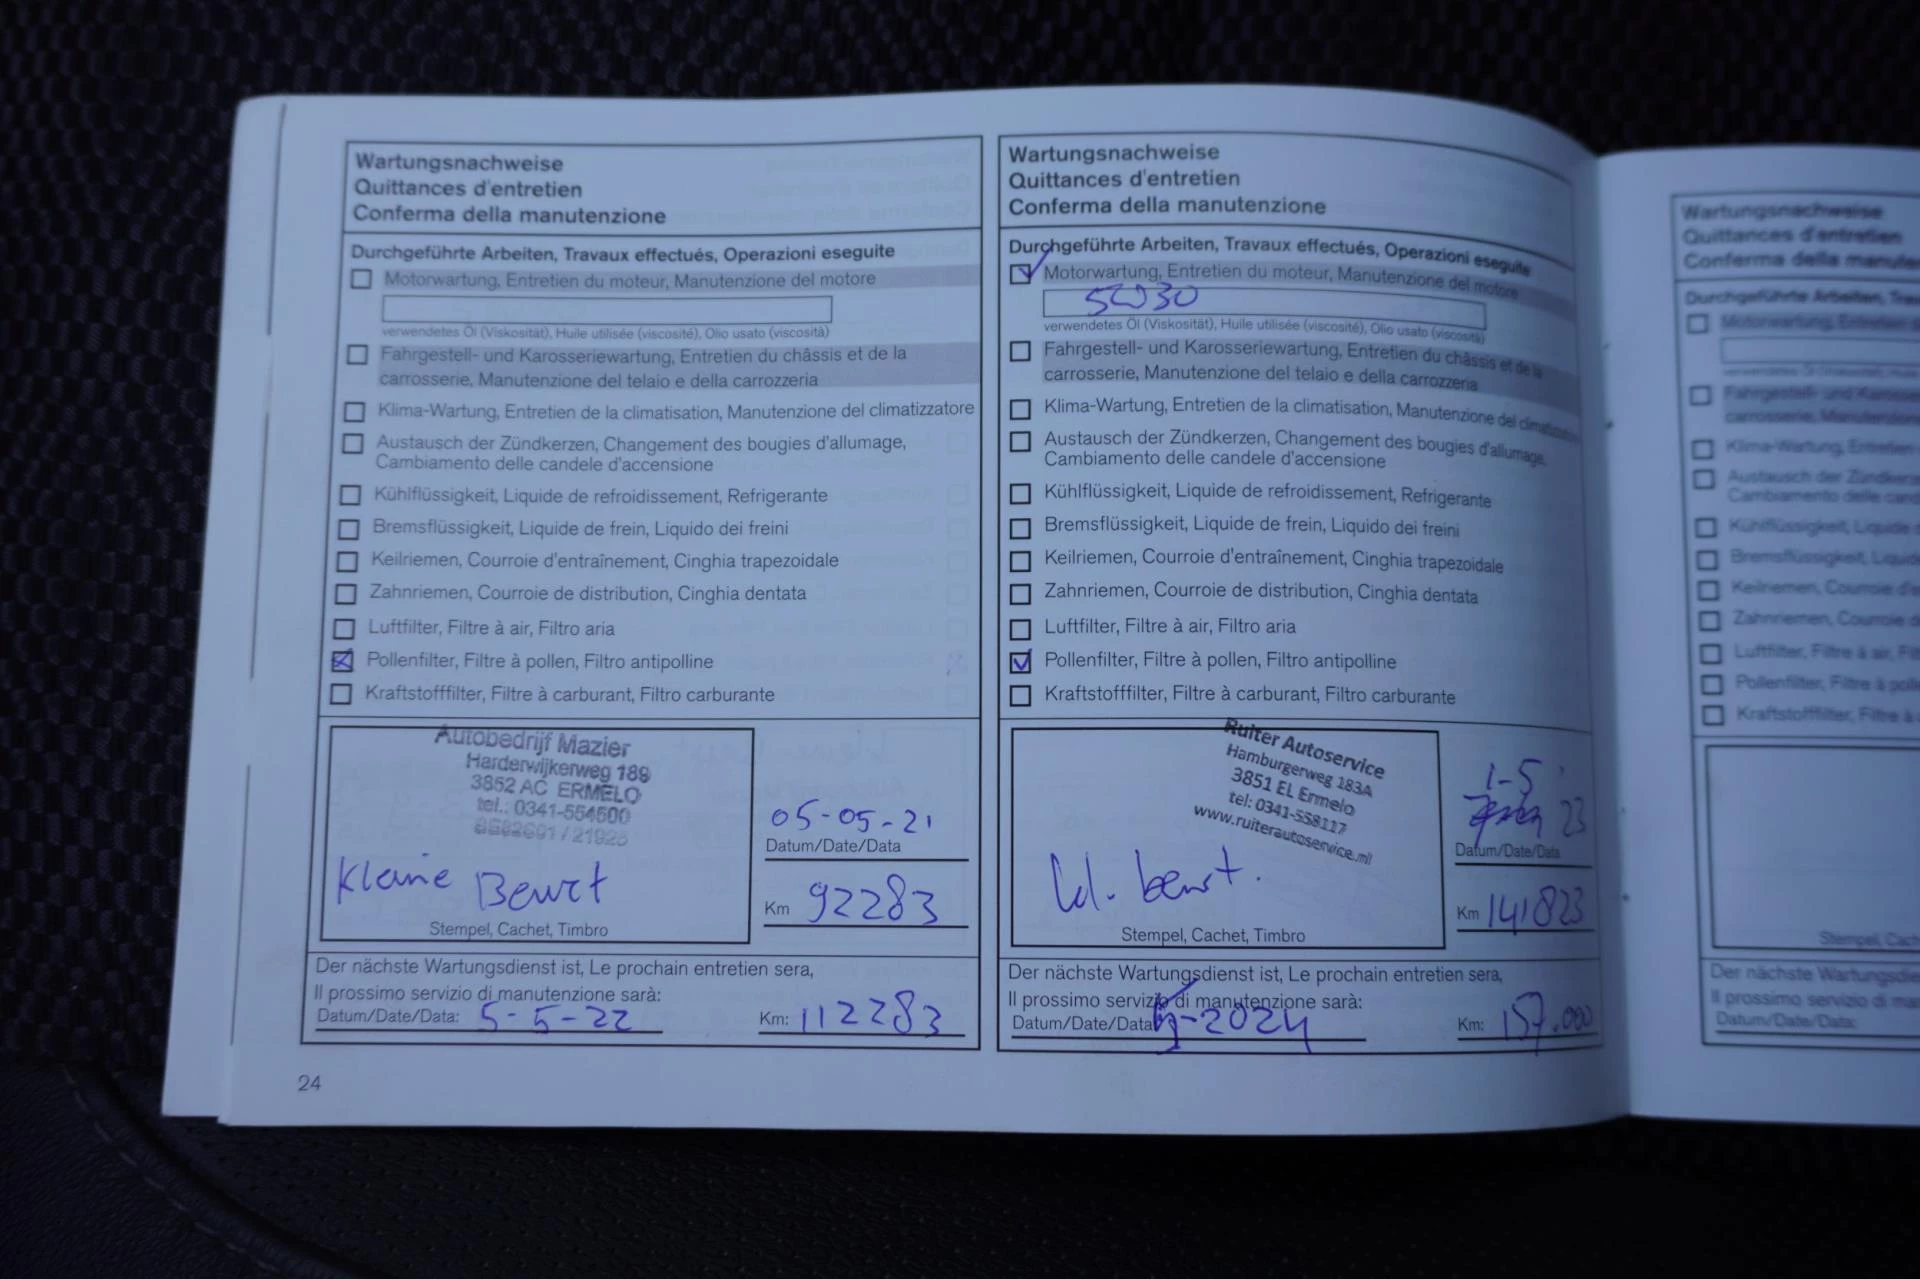 Wartungsnachweise
Quittances d'entretien
Conferma della manutenzione
Durchgeführte Arbeiten, Travaux effectués, Operazioni eseguite
Motorwartung, Entretien du moteur, Manutenzione del motore
verwendetes Öl (Viskosität), Huile utilisée (viscosité), Olio usato (viscosità)
Fahrgestell- und Karosseriewartung, Entretien du châssis et de la
carrosserie, Manutenzione del telaio e della carrozzeria
Klima-Wartung, Entretien de la climatisation, Manutenzione del climatizzatore
Austausch der Zündkerzen, Changement des bougies d'allumage,
Cambiamento delle candele d'accensione
Kühlflüssigkeit, Liquide de refroidissement, Refrigerante
Bremsflüssigkeit, Liquide de frein, Liquido dei freini
Keilriemen, Courroie d'entraînement, Cinghia trapezoidale
Zahnriemen, Courroie de distribution, Cinghia dentata
Luftfilter, Filtre à air, Filtro aria
Pollenfilter, Filtre à pollen, Filtro antipolline
Kraftstofffilter, Filtre à carburant, Filtro carburante
Autobedrijf Mazier
Harderwijkerweg 189
3852 AC ERMELO
tel.: 0341-554500
Kleine Beurt
Stempel, Cachet, Timbro
05-05-21
Datum/Date/Data
Km 92283
Der nächste Wartungsdienst ist, Le prochain entretien sera,
Il prossimo servizio di manutenzione sarà:
Datum/Date/Data: 5-5-22 Km: 112283
24
Wartungsnachweise
Quittances d'entretien
Conferma della manutenzione
Durchgeführte Arbeiten, Travaux effectués, Operazioni eseguite
Motorwartung, Entretien du moteur, Manutenzione del motore
5W30
verwendetes Öl (Viskosität), Huile utilisée (viscosité), Olio usato (viscosità)
Fahrgestell- und Karosseriewartung, Entretien du châssis et de la
carrosserie, Manutenzione del telaio e della carrozzeria
Klima-Wartung, Entretien de la climatisation, Manutenzione del
Austausch der Zündkerzen, Changement des bougies d'allumage,
Cambiamento delle candele d'accensione
Kühlflüssigkeit, Liquide de refroidissement, Refrigerante
Bremsflüssigkeit, Liquide de frein, Liquido dei freini
Keilriemen, Courroie d'entraînement, Cinghia trapezoidale
Zahnriemen, Courroie de distribution, Cinghia dentata
Luftfilter, Filtre à air, Filtro aria
Pollenfilter, Filtre à pollen, Filtro antipolline
Kraftstofffilter, Filtre à carburant, Filtro carburante
Ruiter Autoservice
Hamburgerweg 183A
3851 EL Ermelo
tel: 0341-558117
www.ruiterautoservice.nl
kl. beurt.
Stempel, Cachet, Timbro
1-5
23
Datum/Date/Data
Km 141823
Der nächste Wartungsdienst ist, Le prochain entretien sera,
Il prossimo servizio di manutenzione sarà:
Datum/Date/Data 5-2024 Km: 157.000
Wartungsnachweise
Quittances d'entretien
Conferma della
Durchgeführte Arbeiten,
Motorwartung, Entretien du
Fahrgestell- und
carrosserie,
Klima-Wartung,
Austausch der
Cambiamento delle
Kühlflüssigkeit, Liquide
Bremsflüssigkeit,
Keilriemen, Courroie
Zahnriemen, Courroie
Luftfilter, Filtre à air,
Pollenfilter, Filtre à
Kraftstofffilter, Filtre à
Stempel,
Der nächste
Il prossimo servizio di
Datum/Date/Data: